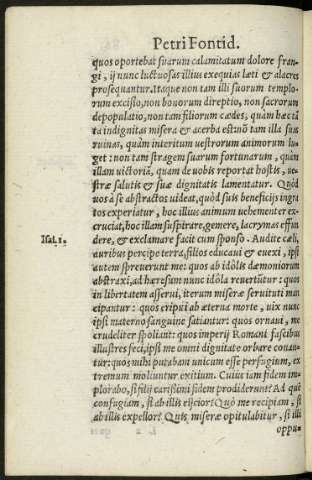 Petri Fontid.
quos oportebat suarum calamitatum dolore fran-
gi, ij nunc luctuosas illius exequias læti & alacres
prosequantur. Itaque non tam illi suorum templo-
rum excisio, non bouorum direptio, non sacrorum
depopulatio, non tam filiorum cædes, quàm hæc tā
ta indignitas misera & acerba est: nō tam illa suas
ruinas, quàm interitum vestrorum animorum lu-
get: non tam stragem suarum fortunarum, quàm
illam uictoriā, quam de uobis reportat hostis, ue-
stræ salutis & suæ dignitatis lamentatur. Quòd
uos à se abstractos uideat, quòd suis beneficijs ingra
tos experiatur, hoc illius animum uehementer ex-
cruciat, hoc illam suspirare, gemere, lacrymas effun
Isai.1. dere, & exclamare facit cum sponso. Audite cæli,
auribus percipe terra, filios educaui & euexi, ipsi
autem spreuerunt me: quos ab idōlis dæmoniorum
abstraxi, ad hæresum nunc idōla reuertūtur: quos
in libertatem asserui, iterum miseræ seruituti man
cipantur: quos eripui ab æterna morte, uix nunc
ipsi materno sanguine satiantur: quos ornaui, me
crudeliter spoliant: quos imperij Romani fascibus
illustres feci, ipsi me omni dignitate orbare conan-
tur: quos mihi putabam unicum esse perfugium, ex
tremum moliuntur exitium. Cuius iam fidem im-
plorabo, si filij carissimi fidem prodiderunt? Ad quē
confugiam, si ab illis eijcior? Quò me recipiam, si
ab illis expellor? Quis miseræ opitulabitur, si illi
oppu-